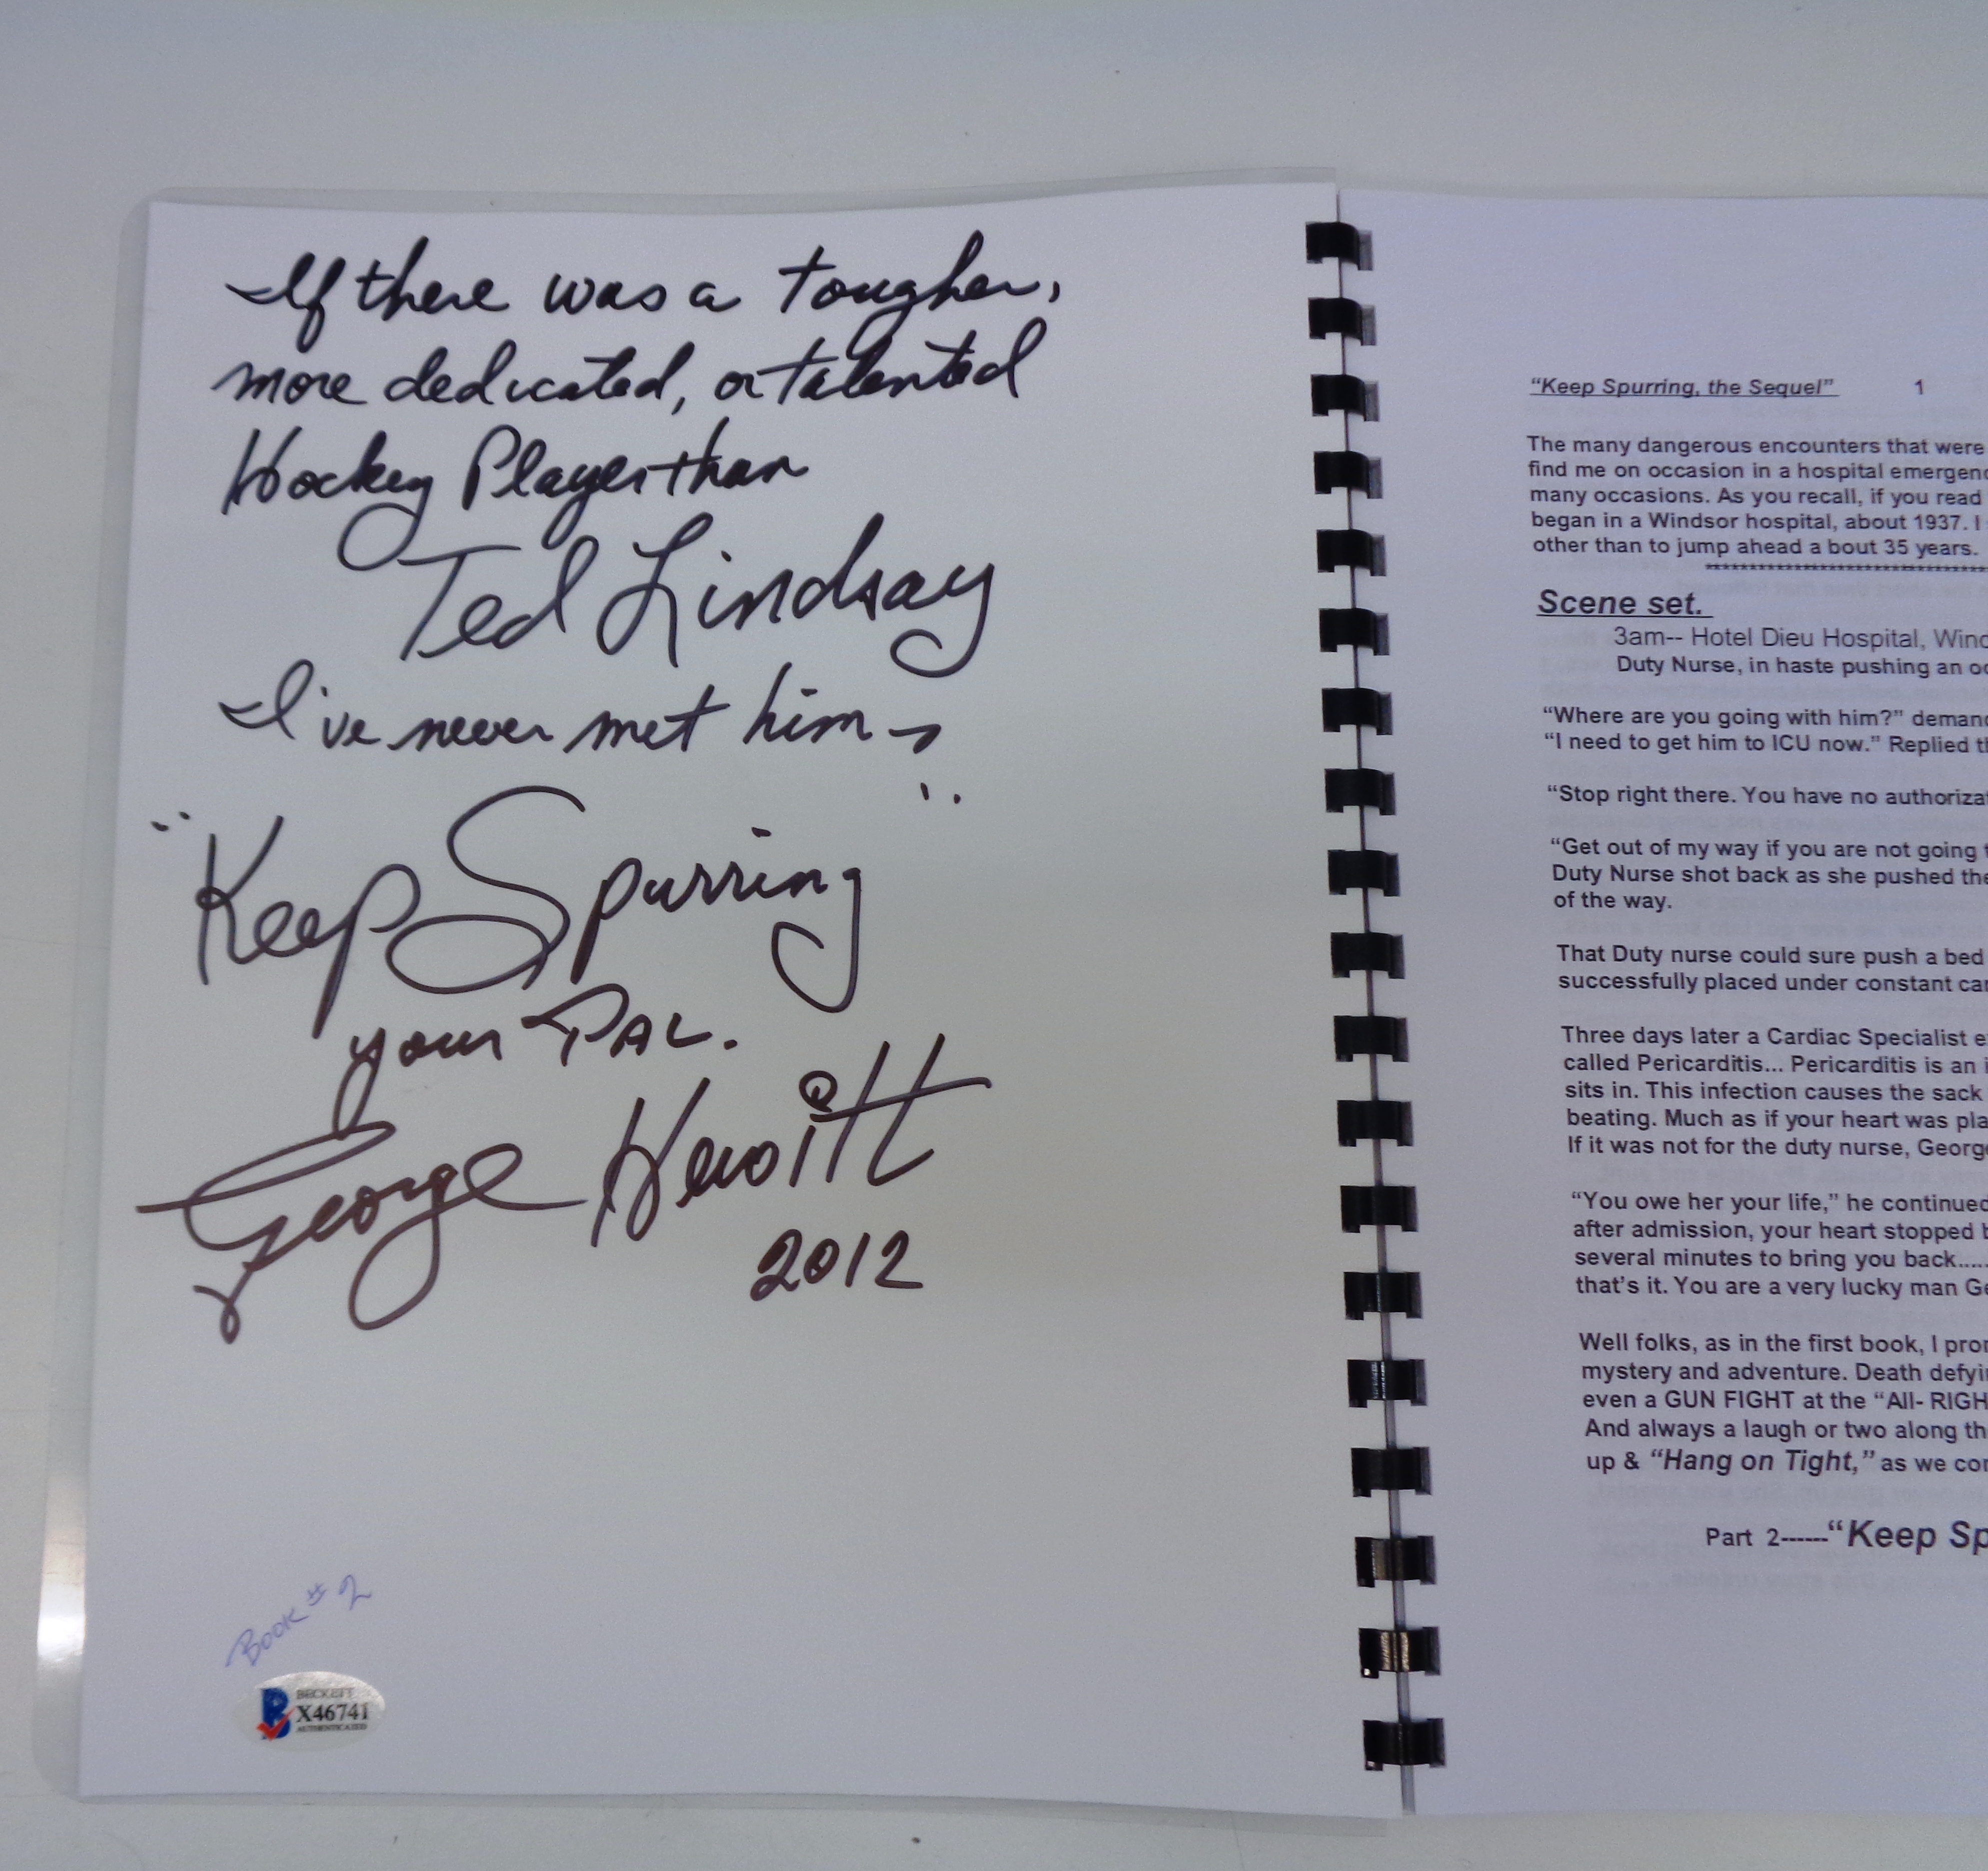 If there was a tougher,
more dedicated, or talented
Hockey Player than
Ted Lindsay
I've never met him
"Keep Spurring"
your PAL.
George Hewitt
2012
Book # 2
BECKETT
X46741
AUTHENTICATED
"Keep Spurring, the Sequel" 1
The many dangerous encounters that were
find me on occasion in a hospital emergenc
many occasions. As you recall, if you read
began in a Windsor hospital, about 1937. I
other than to jump ahead a bout 35 years.
Scene set.
3am-- Hotel Dieu Hospital, Wind
Duty Nurse, in haste pushing an oc
"Where are you going with him?" demand
"I need to get him to ICU now." Replied th
"Stop right there. You have no authorizat
"Get out of my way if you are not going t
Duty Nurse shot back as she pushed the
of the way.
That Duty nurse could sure push a bed
successfully placed under constant car
Three days later a Cardiac Specialist e
called Pericarditis... Pericarditis is an i
sits in. This infection causes the sack
beating. Much as if your heart was pla
If it was not for the duty nurse, George
"You owe her your life," he continued
after admission, your heart stopped b
several minutes to bring you back.....
that's it. You are a very lucky man Ge
Well folks, as in the first book, I pron
mystery and adventure. Death defyin
even a GUN FIGHT at the "All- RIGH
And always a laugh or two along th
up & "Hang on Tight," as we con
Part 2------"Keep Sp